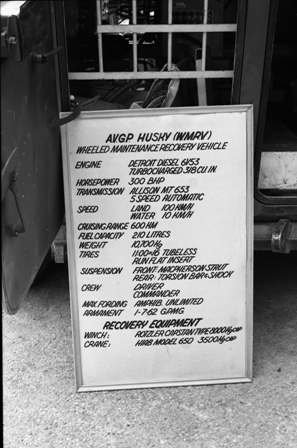 AVGP HUSKY (WMRV)
WHEELED MAINTENANCE RECOVERY VEHICLE
ENGINE DETROIT DIESEL 6V53
TURBOCHARGED 318 CU. IN.
HORSEPOWER 300 BHP
TRANSMISSION ALLISON MT 653
5 SPEED AUTOMATIC
SPEED LAND 100 KM/H
WATER 10 KM/H
CRUISING RANGE 600 KM
FUEL CAPACITY 210 LITRES
WEIGHT 10,700 Kg
TIRES 11:00×16 TUBELESS
RUN FLAT INSERT
SUSPENSION FRONT: MACPHERSON STRUT
REAR: TORSION BAR & SHOCK
CREW DRIVER
COMMANDER
MAX. FORDING AMPHIB. UNLIMITED
ARMAMENT 1-7.62 G.P.M.G.
RECOVERY EQUIPMENT
WINCH: ROTZLER TYPE 8000 Kg CAP
CRANE: HIAB MODEL 650 3500 Kg CAP